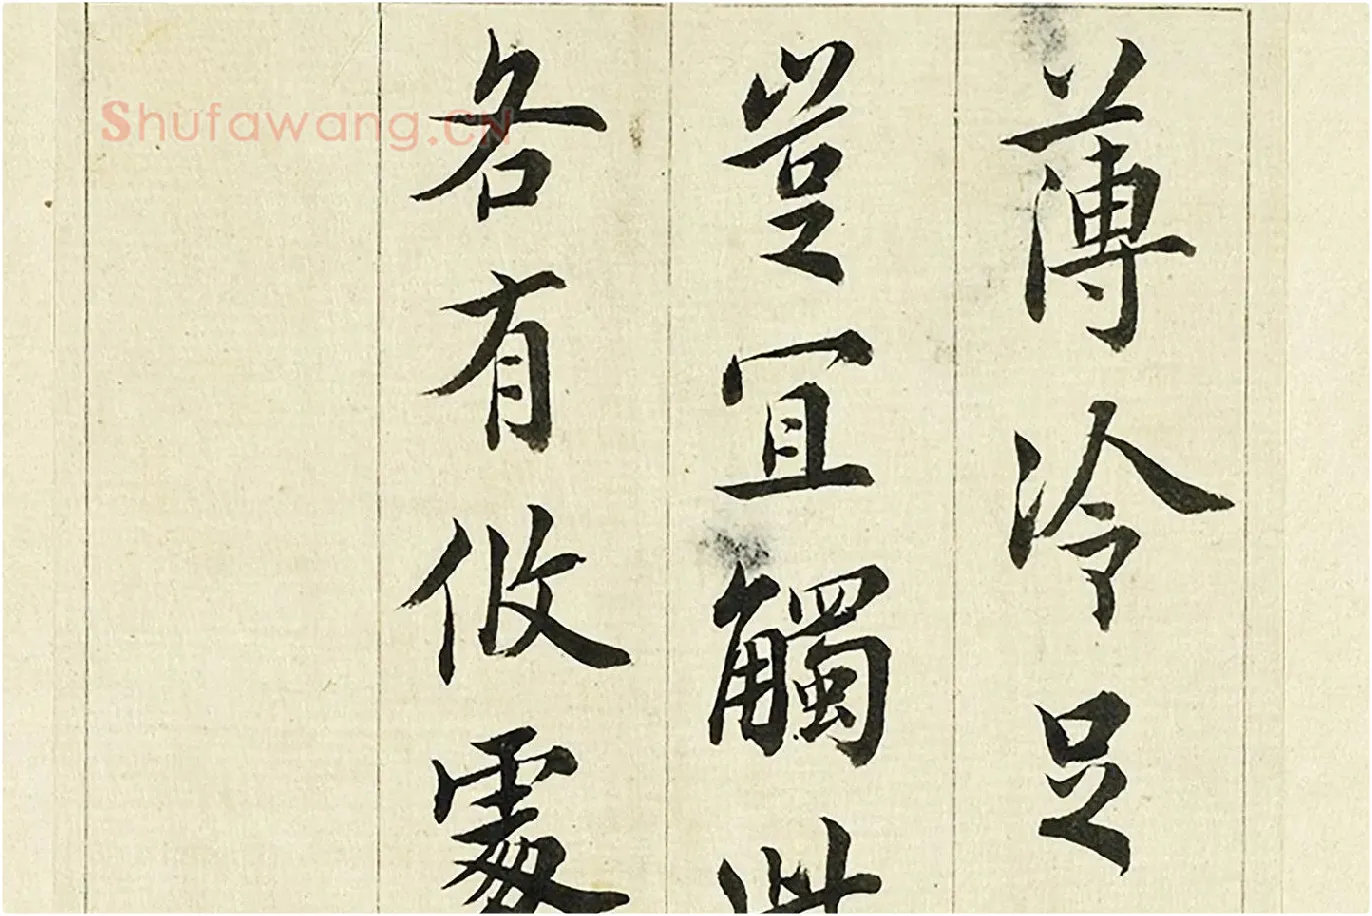 薄冷足
豈宜觸
各有攸處
Shufawang.CN